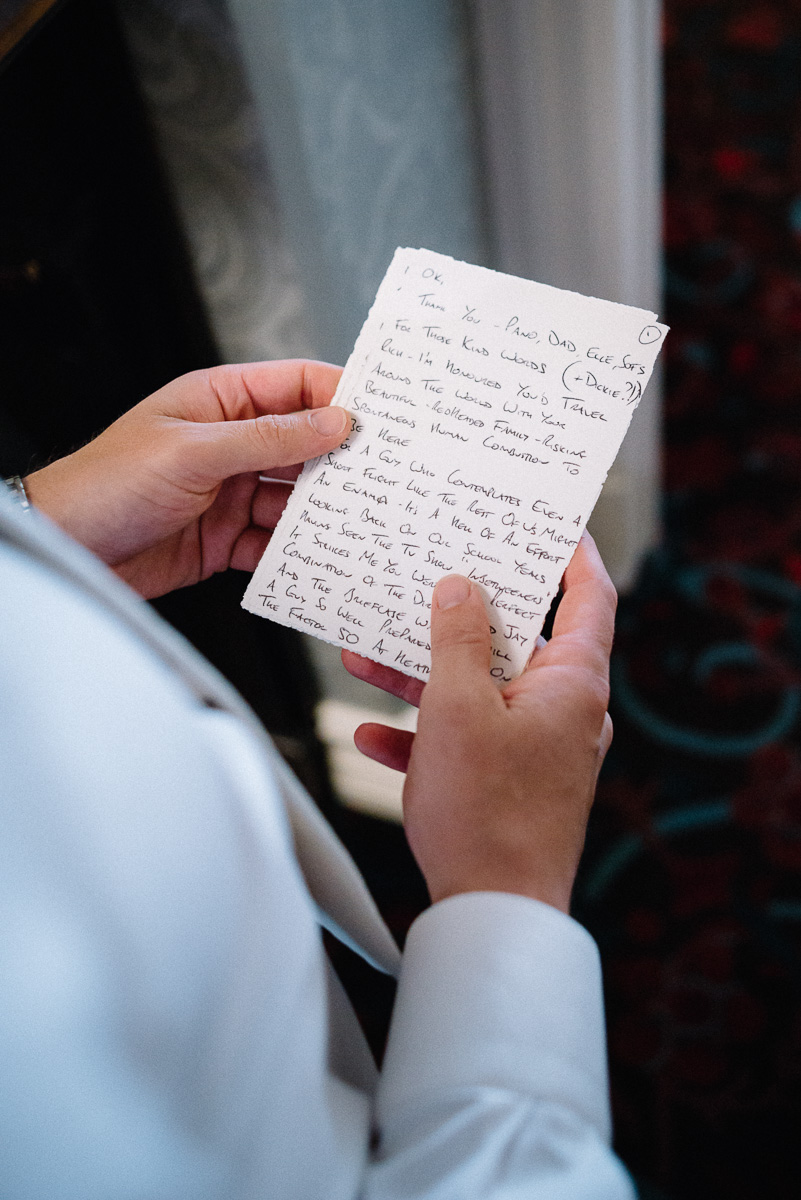 OK,
①
THANK YOU - PANO, DAD, ELLE, SOFS
FOR THOSE KIND WORDS (+ DICKIE?!)
RICH - I'M HONOURED YOU'D TRAVEL
AROUND THE WORLD WITH YOUR
BEAUTIFUL REDHEADED FAMILY - RISKING
SPONTANEOUS HUMAN COMBUSTION TO
BE HERE
FOR A GUY WHO CONTEMPLATES EVEN A
SHORT FLIGHT LIKE THE REST OF US MIGHT
AN ENAMA - IT'S A HELL OF AN EFFORT
LOOKING BACK ON OUR SCHOOL YEARS
HAVING SEEN THE TV SHOW "INBETWEENERS"
IT STRIKES ME YOU WERE PERFECT
COMBINATION OF THE JAY
AND THE BRIEFCASE WILL
A GUY SO WELL PREPARED ON
THE FACTOR 50 AT